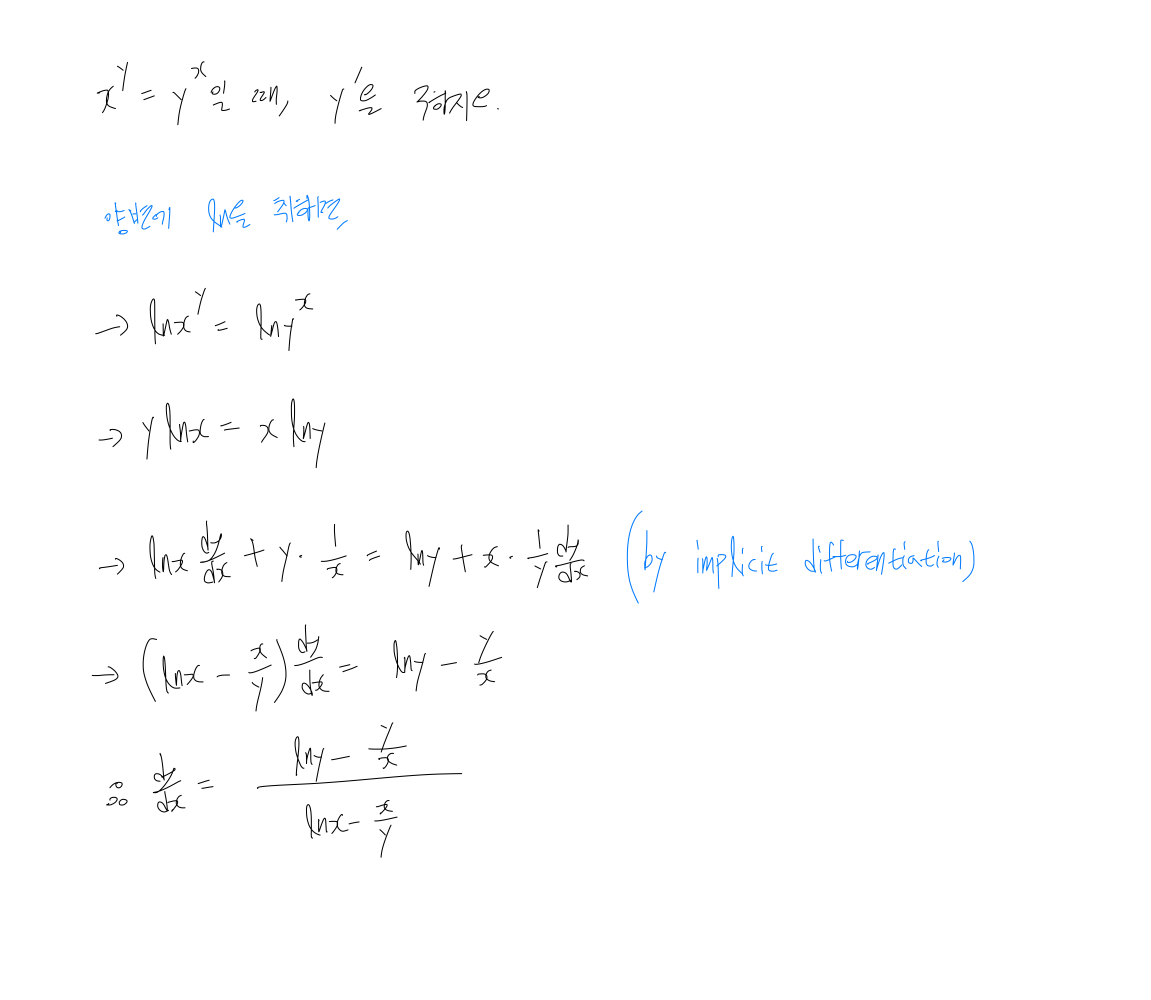 x^y = y^x일 때, y'을 구하시오.
양변에 ln을 취하면,
→ lnx^y = lny^x
→ y lnx = x lny
→ lnx dy/dx + y · 1/x = lny + x · 1/y dy/dx (by implicit differentiation)
→ (lnx - x/y) dy/dx = lny - y/x
∴ dy/dx = (lny - y/x)/(lnx - x/y)